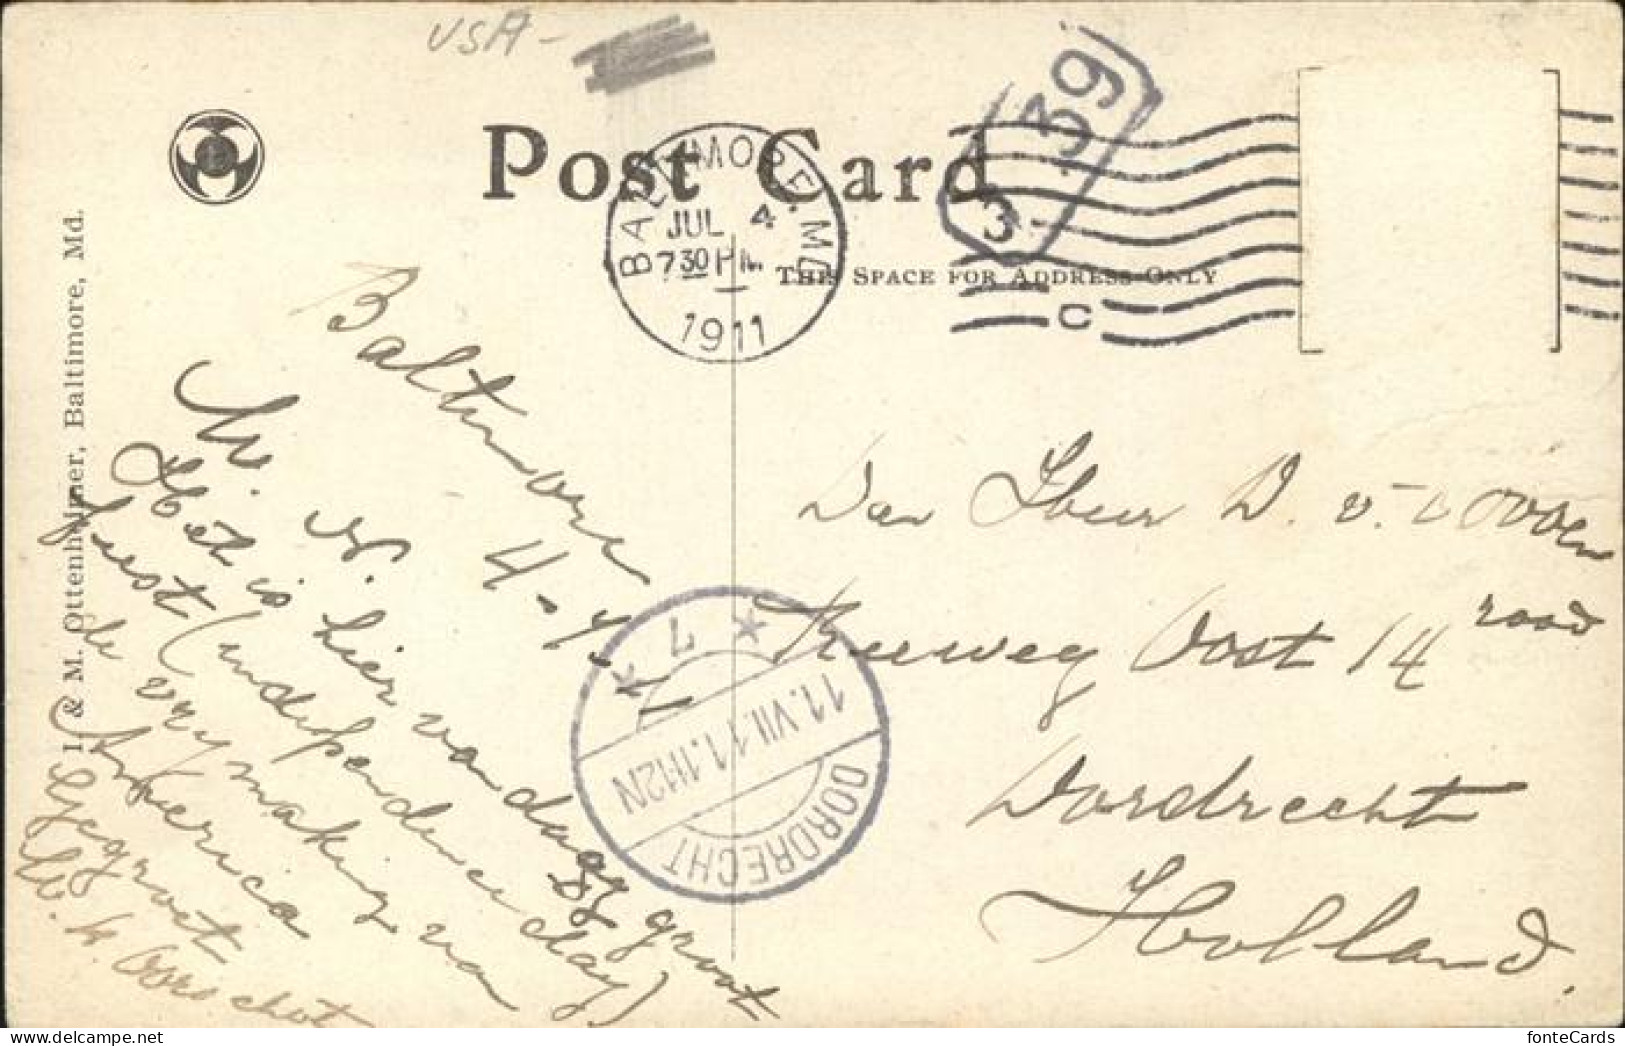 USA -
Post Card
BALTIMORE, MD.
JUL 4
7 30 PM
1911
3
39
C
THIS SPACE FOR ADDRESS ONLY
I. & M. Ottenheimer, Baltimore, Md.
Baltimore
4-7-11
W. N.
Het is hier vandaag groot
feest (independence day)
de vrymaking van
Amerika
Gegroet
W. v. Oorschot
Den Heer D. v.
rood
Reeweg Oost 14
Dordrecht
Holland.
DORDRECHT
11.VII.11.1112N
7
fonteCards